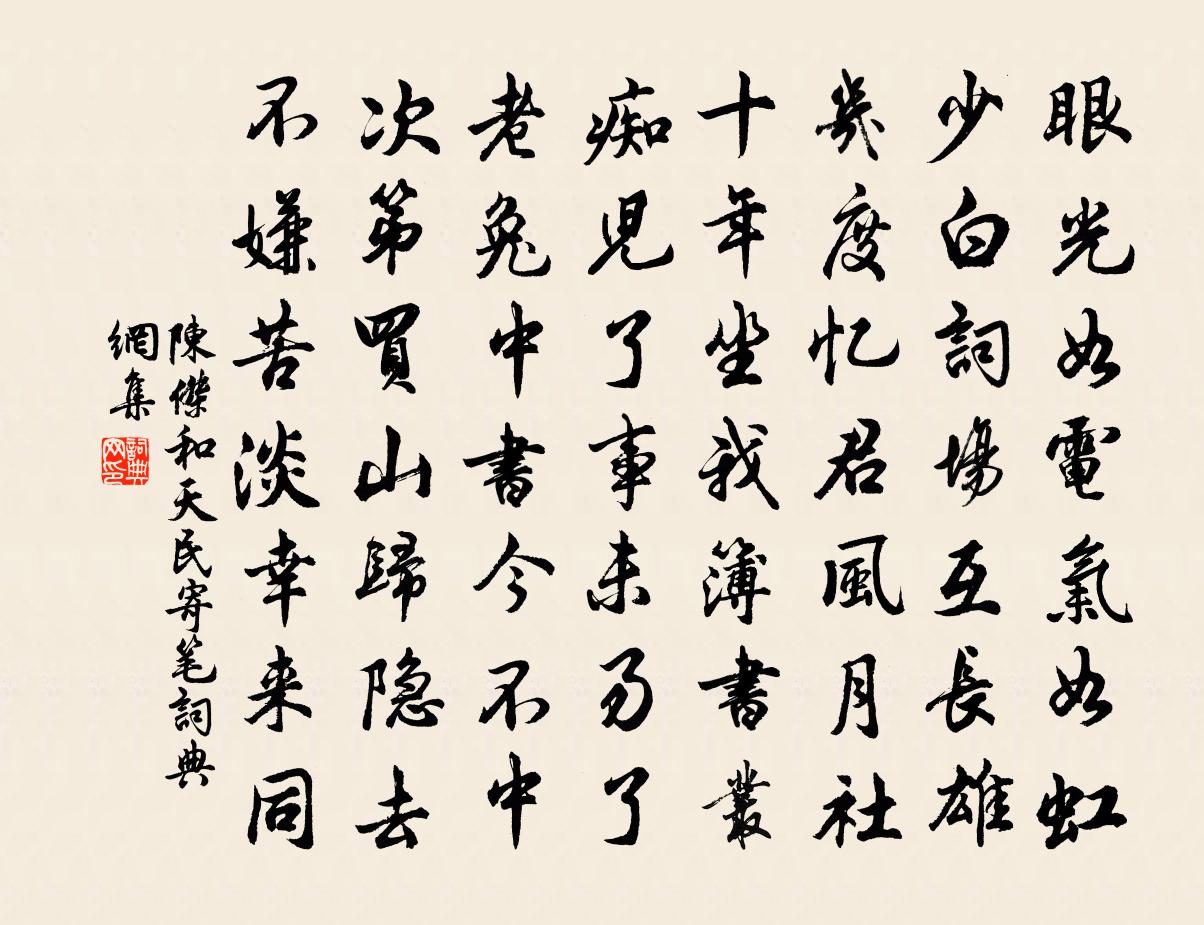 眼光如電氣如虹
少白詞場互長雄
幾度忆君風月社
十年坐我簿書叢
痴児了事未易了
老兔中書今不中
次第買山歸隐去
不嫌苦淡幸来同
陳傑和天民寄笔詞典
網集
詞典
网印